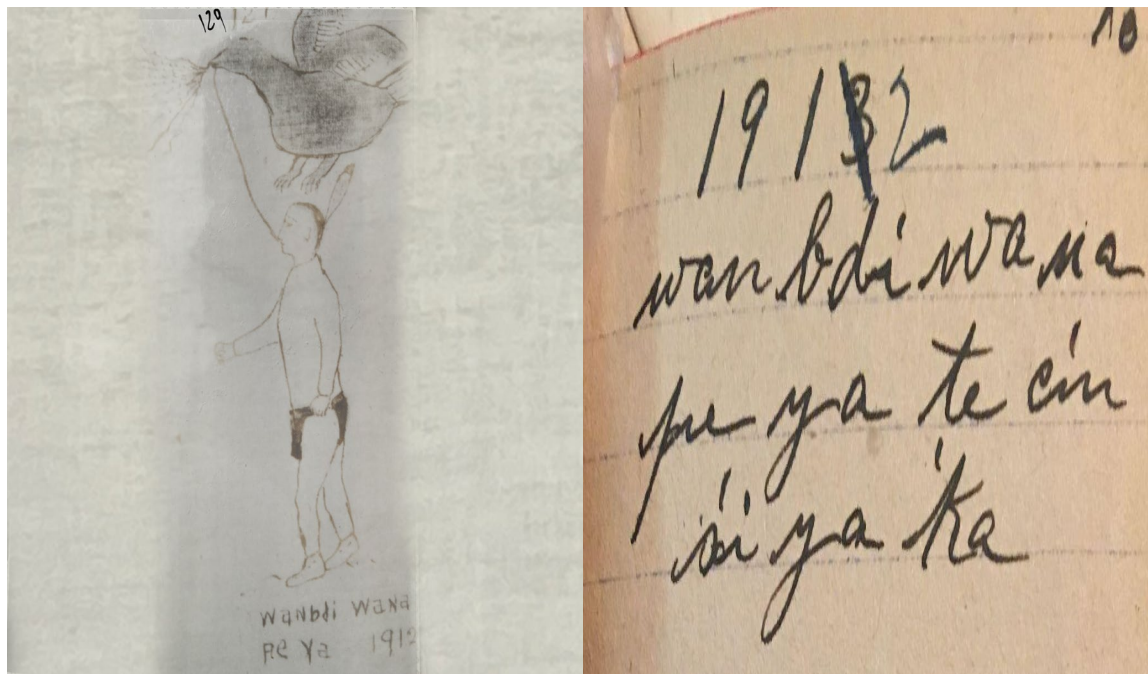 129
wanbdi wana
pe ya 1912
10
19132
wanbdi wana
pe ya te cin
si ya ka